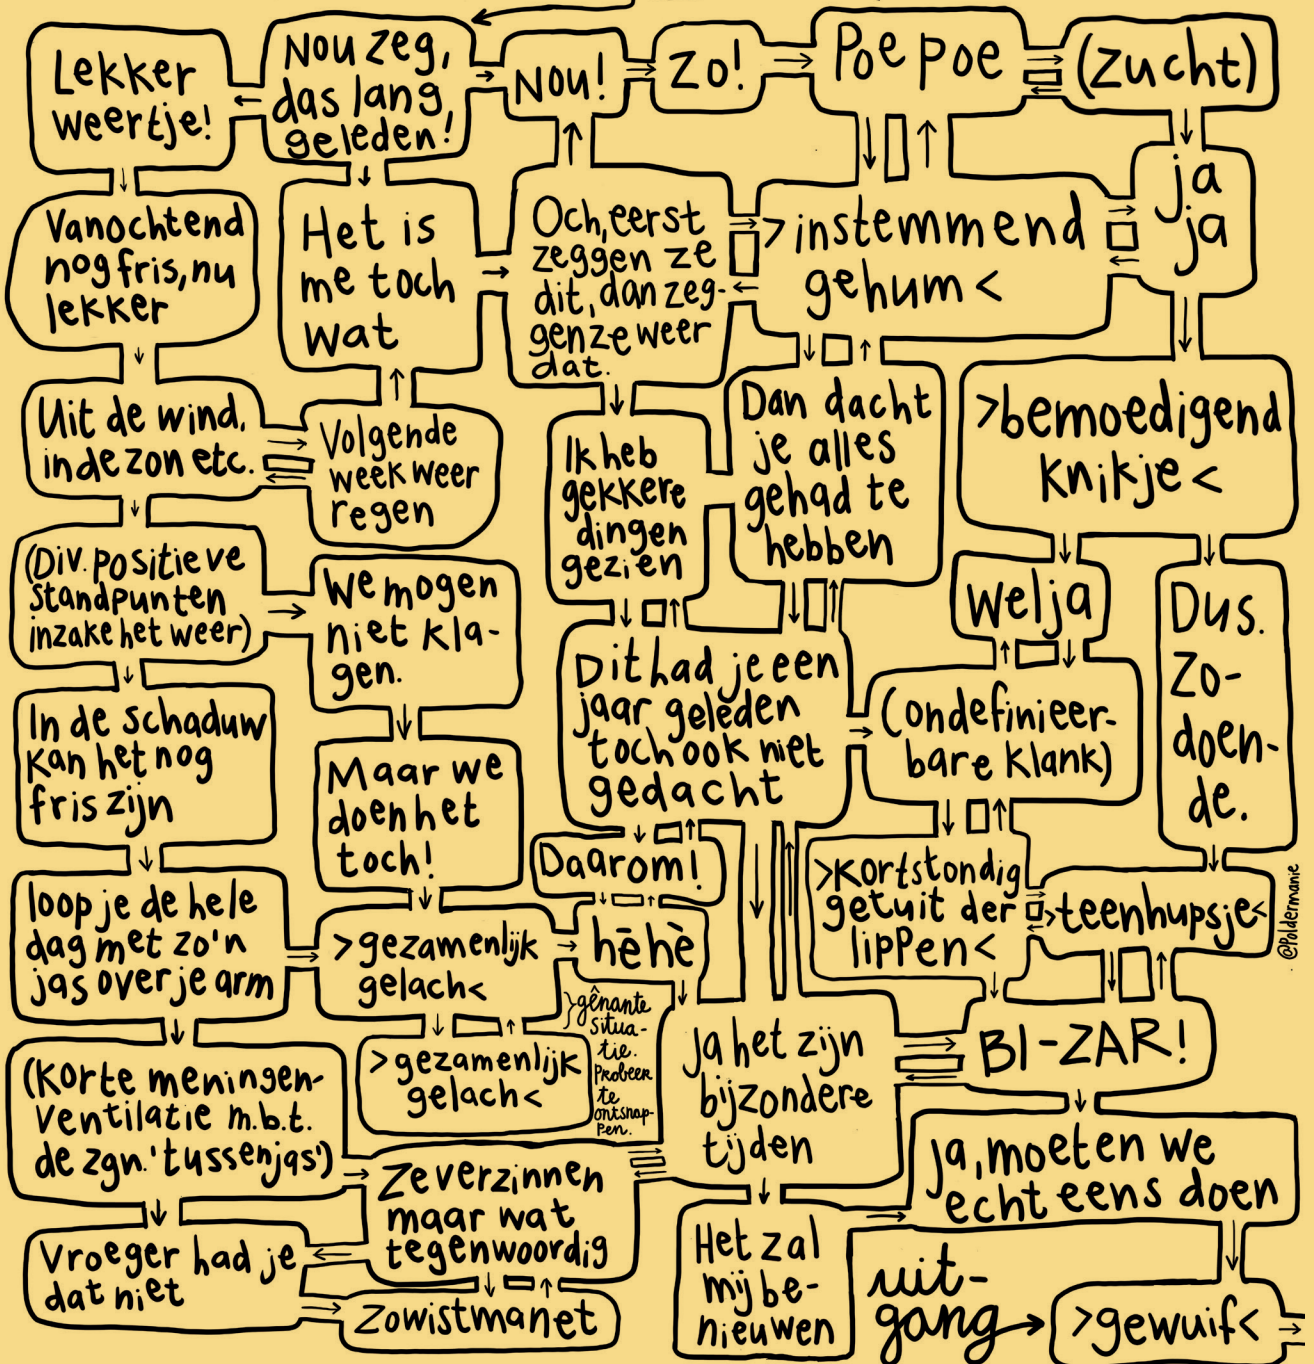 Lekker
weertje!
Nou zeg,
das lang
geleden!
Nou!
Zo!
Poe poe
(zucht)
Vanochtend
nog fris, nu
lekker
Het is
me toch
wat
Och, eerst
zeggen ze
dit, dan zeg-
gen ze weer
dat.
>instemmend
gehum<
ja
ja
Uit de wind,
in de zon etc.
Volgende
week weer
regen
Ik heb
gekkere
dingen
gezien
Dan dacht
je alles
gehad te
hebben
>bemoedigend
knikje<
(Div. positieve
standpunten
inzake het weer)
We mogen
niet kla-
gen.
Dit had je een
jaar geleden
toch ook niet
gedacht
welja
(ondefinieer-
bare klank)
Dus.
Zo-
doen-
de.
In de schaduw
kan het nog
fris zijn
Maar we
doen het
toch!
Daarom!
>kortstondig
getuit der
lippen<
>teenhupsje<
@Poldermanie
loop je de hele
dag met zo'n
jas over je arm
>gezamenlijk
gelach<
hēhè
>gezamenlijk
gelach<
}gênante
situa-
tie.
Probeer
te
ontsnap-
pen.
Ja het zijn
bijzondere
tijden
BI-ZAR!
(Korte meningen-
ventilatie m.b.t.
de zgn. 'tussenjas')
Ze verzinnen
maar wat
tegenwoordig
Ja, moeten we
echt eens doen
Vroeger had je
dat niet
Zowistmanet
Het zal
mij be-
nieuwen
uit-
gang
>gewuif<